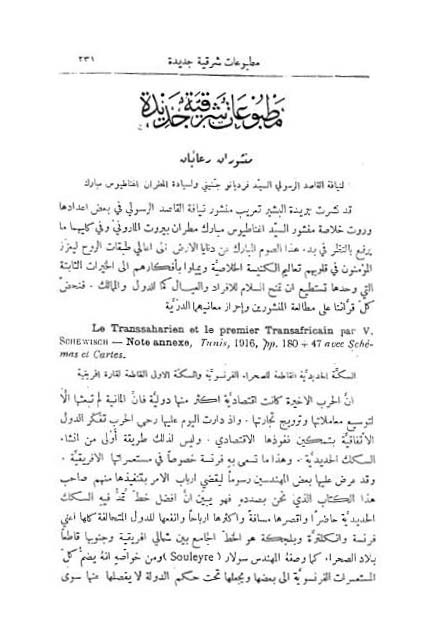 مطبوعات شرقية جديدة ٢٣١
مطبوعات شرقية جديدة
منشوران رعائيان
لنيافة القاصد الرسولي السيد فرديانو جنيني ولسيادة المطران اغناطيوس مبارك
قد نشرت جريدة البشير تعريب منشور نيافة القاصد الرسولي في بعض اعدادها
وروت خلاصة منشور السيد اغناطيوس مبارك مطران بيروت الماروني وفي كليهما ما
يرفع بالنظر في بدء هذا الصوم المبارك من دنايا الارض الى اعالي طبقات الروح ليعزز
المؤمنون في قلوبهم تعاليم الكنيسة الخلاصية ويميلوا بأفكارهم الى الخيرات الثابتة
التي وحدها تستطيع ان تمنح السلام للافراد والعيال كما للدول والممالك . فنحض
كل قرائنا على مطالعة المنشورين واحراز معانيهما الدرية
Le Transsaharien et le premier Transafricain par V.
SCHEWISCH — Note annexe, Tunis, 1916, pp. 180 + 47 avec Sché-
mas et Cartes.
السكة الحديدية القاطعة للصحراء الفرنسوية والسكة الاولى القاطعة لقارة افريقية
ان الحرب الاخيرة كانت اقتصادية اكثر منها دولية فان المانية لم تبعثها الا
لتوسيع معاملاتها وترويج تجارتها . واذ دارت اليوم عليها رحى الحرب تفكر الدول
الاتفاقية بتمكين نفوذها الاقتصادي . وليس لذلك طريقة أولى من انشاء
السكك الحديدية . وهذا ما تسعى به فرنسة خصوصا في مستعمراتها الافريقية .
وقد عرض عليها بعض المهندسين رسوما ليقضي ارباب الامر بتنفيذها منهم صاحب
هذا الكتاب الذي نحن بصدده فهو يبين ان افضل خط تمد فيه السكك
الحديدية حاضرا واقصرها مسافة واكثرها ارباحا وانفعها للدول المتحالفة كلها اعني
فرنسة وانكلترة وبلجكة هو الخط الجامع بين شمالي افريقية وجنوبها قاطعا
بلاد الصحراء كما وصفه المهندس سولار (Souleyre) ومن خواصه انه يضم كل
المستعمرات الفرنسوية الى بعضها ويجعلها تحت حكم الدولة لا يفصلها عنها سوى